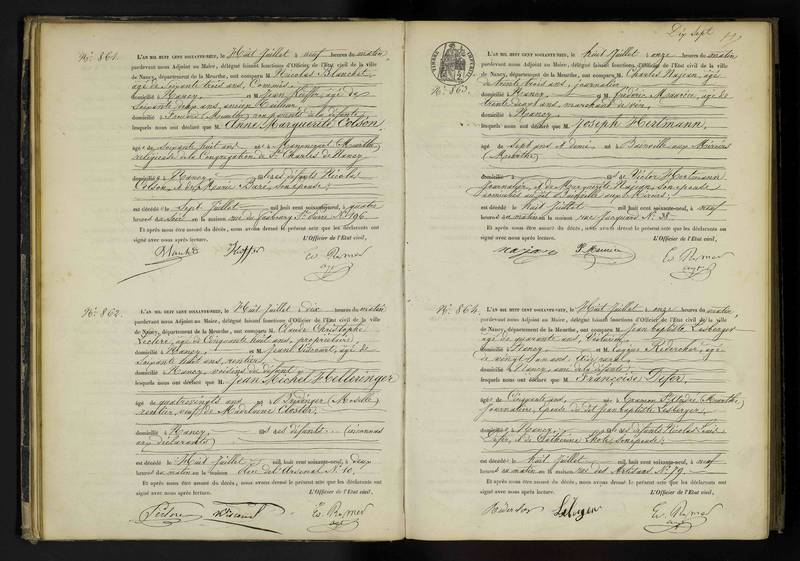 N° 861.
L'AN MIL HUIT CENT SOIXANTE-NEUF, le Huit Juillet à neuf heures du matin
pardevant nous Adjoint au Maire, délégué faisant fonctions d'Officier de l'Etat civil de la ville
de Nancy, département de la Meurthe, ont comparu M. Nicolas Blanchet
âgé de soixante trois ans, Commis
domicilié à Nancy, et M. Jean Kieffer, âgé de
soixante deux ans, ancien
domicilié à non parents de la défunte,
lesquels nous ont déclaré que M. Anne Marguerite Colson,
âgée de soixante huit ans, née à Meurthe
religieuse de la Congrégation de St Charles de Nancy
domiciliée à Nancy, des défunts Nicolas
Colson, et de Marie Baré, son épouse;
est décédée le Sept Juillet mil huit cent soixante-neuf, à quatre
heures du soir en la maison rue du faubourg St Pierre N° 196
Et après nous être assuré du décès, nous avons dressé le présent acte que les déclarants ont
signé avec nous après lecture. L'Officier de l'Etat civil,
N° 862.
L'AN MIL HUIT CENT SOIXANTE-NEUF, le Huit Juillet dix heures du matin
pardevant nous Adjoint au Maire, délégué faisant fonctions d'Officier de l'Etat civil de la ville
de Nancy, département de la Meurthe, ont comparu M. Claude Christophe
Leclerc, âgé de Cinquante huit ans, propriétaire
domicilié à Nancy, et M. Jean Viriout, âgé de
soixante huit ans, rentier,
domicilié à Nancy, voisins du défunt
lesquels nous ont déclaré que M. Jean Michel Helleringer
âgé de quatrevingts ans, né à (Moselle)
rentier, veuf de Madeleine
domicilié à Nancy, des défunts (inconnus
aux déclarants)
est décédé le Huit Juillet mil huit cent soixante-neuf, à deux
heures du matin en la maison rue de l'Arsenal N° 10,
Et après nous être assuré du décès, nous avons dressé le présent acte que les déclarants ont
signé avec nous après lecture. L'Officier de l'Etat civil,
Dix Sept
N° 863.
L'AN MIL HUIT CENT SOIXANTE-NEUF, le huit Juillet à onze heures du matin
pardevant nous Adjoint au Maire, délégué faisant fonctions d'Officier de l'Etat civil de la ville
de Nancy, département de la Meurthe, ont comparu M. Charles Najean, âgé
de trente trois ans, journalier
domicilié à Nancy, et M. âgé de
trente ans, marchand de vin,
domicilié à Nancy
lesquels nous ont déclaré que M. Joseph Hertmann,
âgé de Sept ans et demi, né à Bainville aux Miroirs
(Meurthe)
domicilié à fils de Victor Hertmann
journalier, et de Marguerite Najean, son épouse
domiciliés audit Bainville aux Miroirs;
est décédé le Huit Juillet mil huit cent soixante-neuf, à neuf
heures du matin en la maison rue Jacquard N° 38
Et après nous être assuré du décès, nous avons dressé le présent acte que les déclarants ont
signé avec nous après lecture. L'Officier de l'Etat civil,
N° 864.
L'AN MIL HUIT CENT SOIXANTE-NEUF, le Huit Juillet à onze heures du matin,
pardevant nous Adjoint au Maire, délégué faisant fonctions d'Officier de l'Etat civil de la ville
de Nancy, département de la Meurthe, ont comparu M. Jean baptiste Lesberger
âgé de quarante ans,
domicilié à Nancy et M. Eugène
de vingt ans,
domicilié à Nancy, de la défunte,
lesquels nous ont déclaré que M. Françoise Défer,
âgée de Cinquante ans, née à
journalière, épouse du dit Jean baptiste Lesberger,
domiciliée à Nancy, des défunts Nicolas Louis
Défer, et de Catherine son épouse;
est décédée le huit Juillet mil huit cent soixante-neuf, à neuf
heures du matin en la maison rue des Artisans N° 79
Et après nous être assuré du décès, nous avons dressé le présent acte que les déclarants ont
signé avec nous après lecture. L'Officier de l'Etat civil,